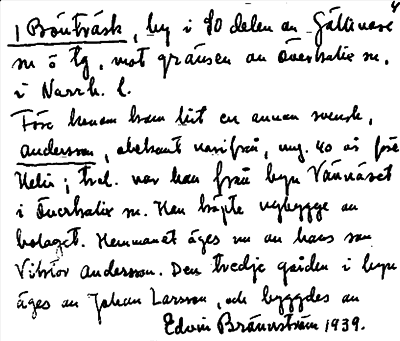 1 Bönträsk, by i SO delen av Gällivare
sn ö tg, mot gränsen av Överkalix sn,
i Norrb. l.
Före honom kom hit en annan svensk,
Andersson, obekant varifrån, ung. 40 år före
Helin; trol. var han från byn Vännäset
i Överkalix sn. Han köpte nybygge av
bolaget. Hemmanet äges nu av hans son
Viktor Andersson. Den tredje gården i byn
äges av Johan Larsson, och byggdes av
Edvin Brännström 1939.